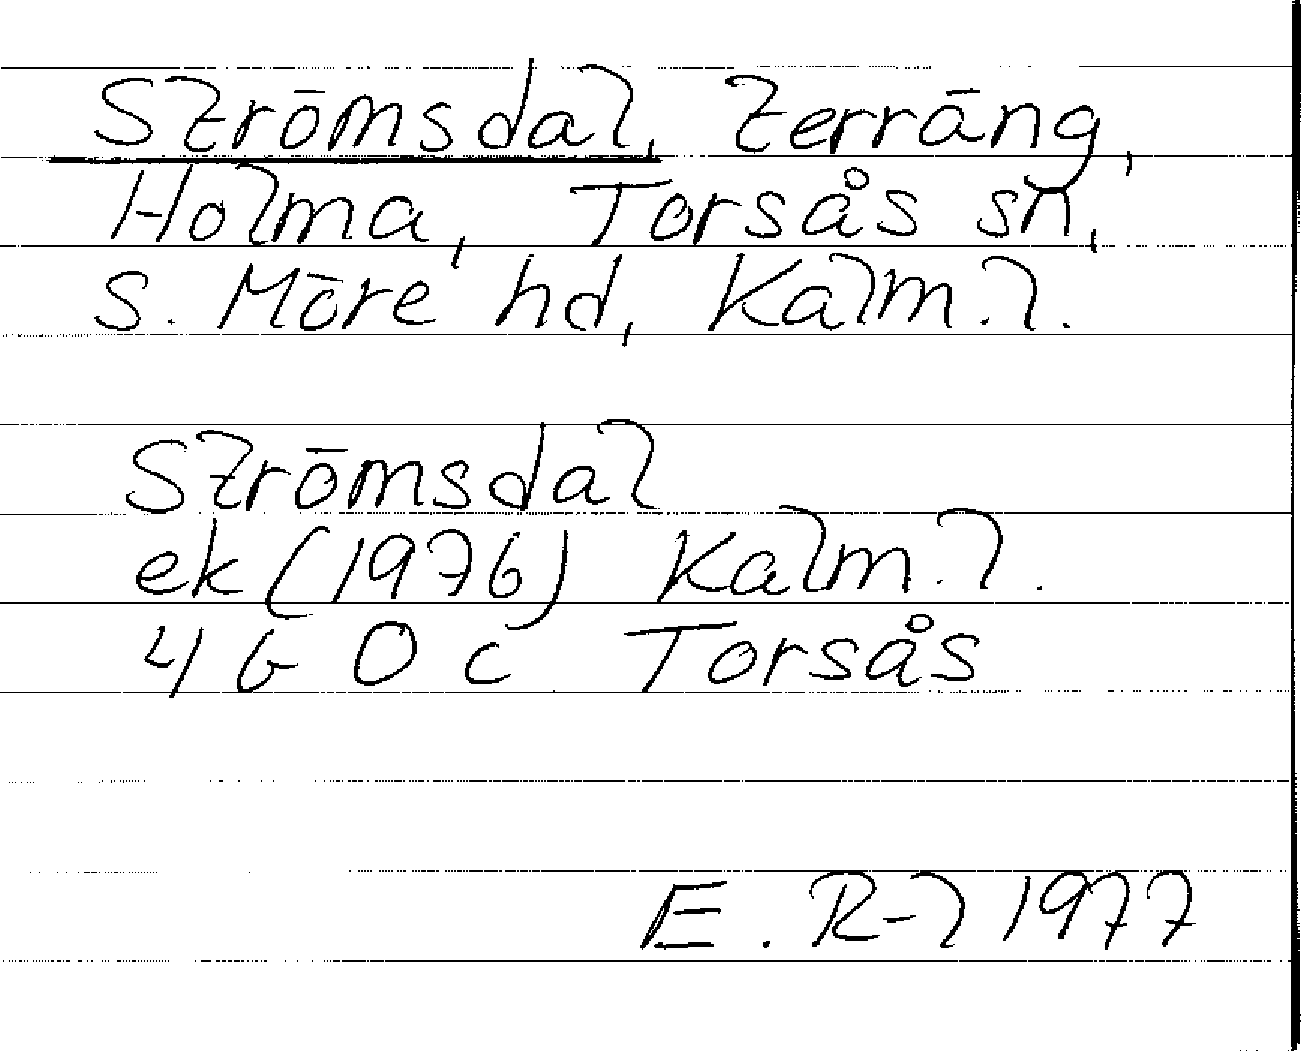 Strömsdal, terräng,
Holma, Torsås sn,
S. Möre hd, Kalm.l.
Strömsdal
ek (1976) Kalm.l.
4 G 0 c Torsås
E. R-l 1977